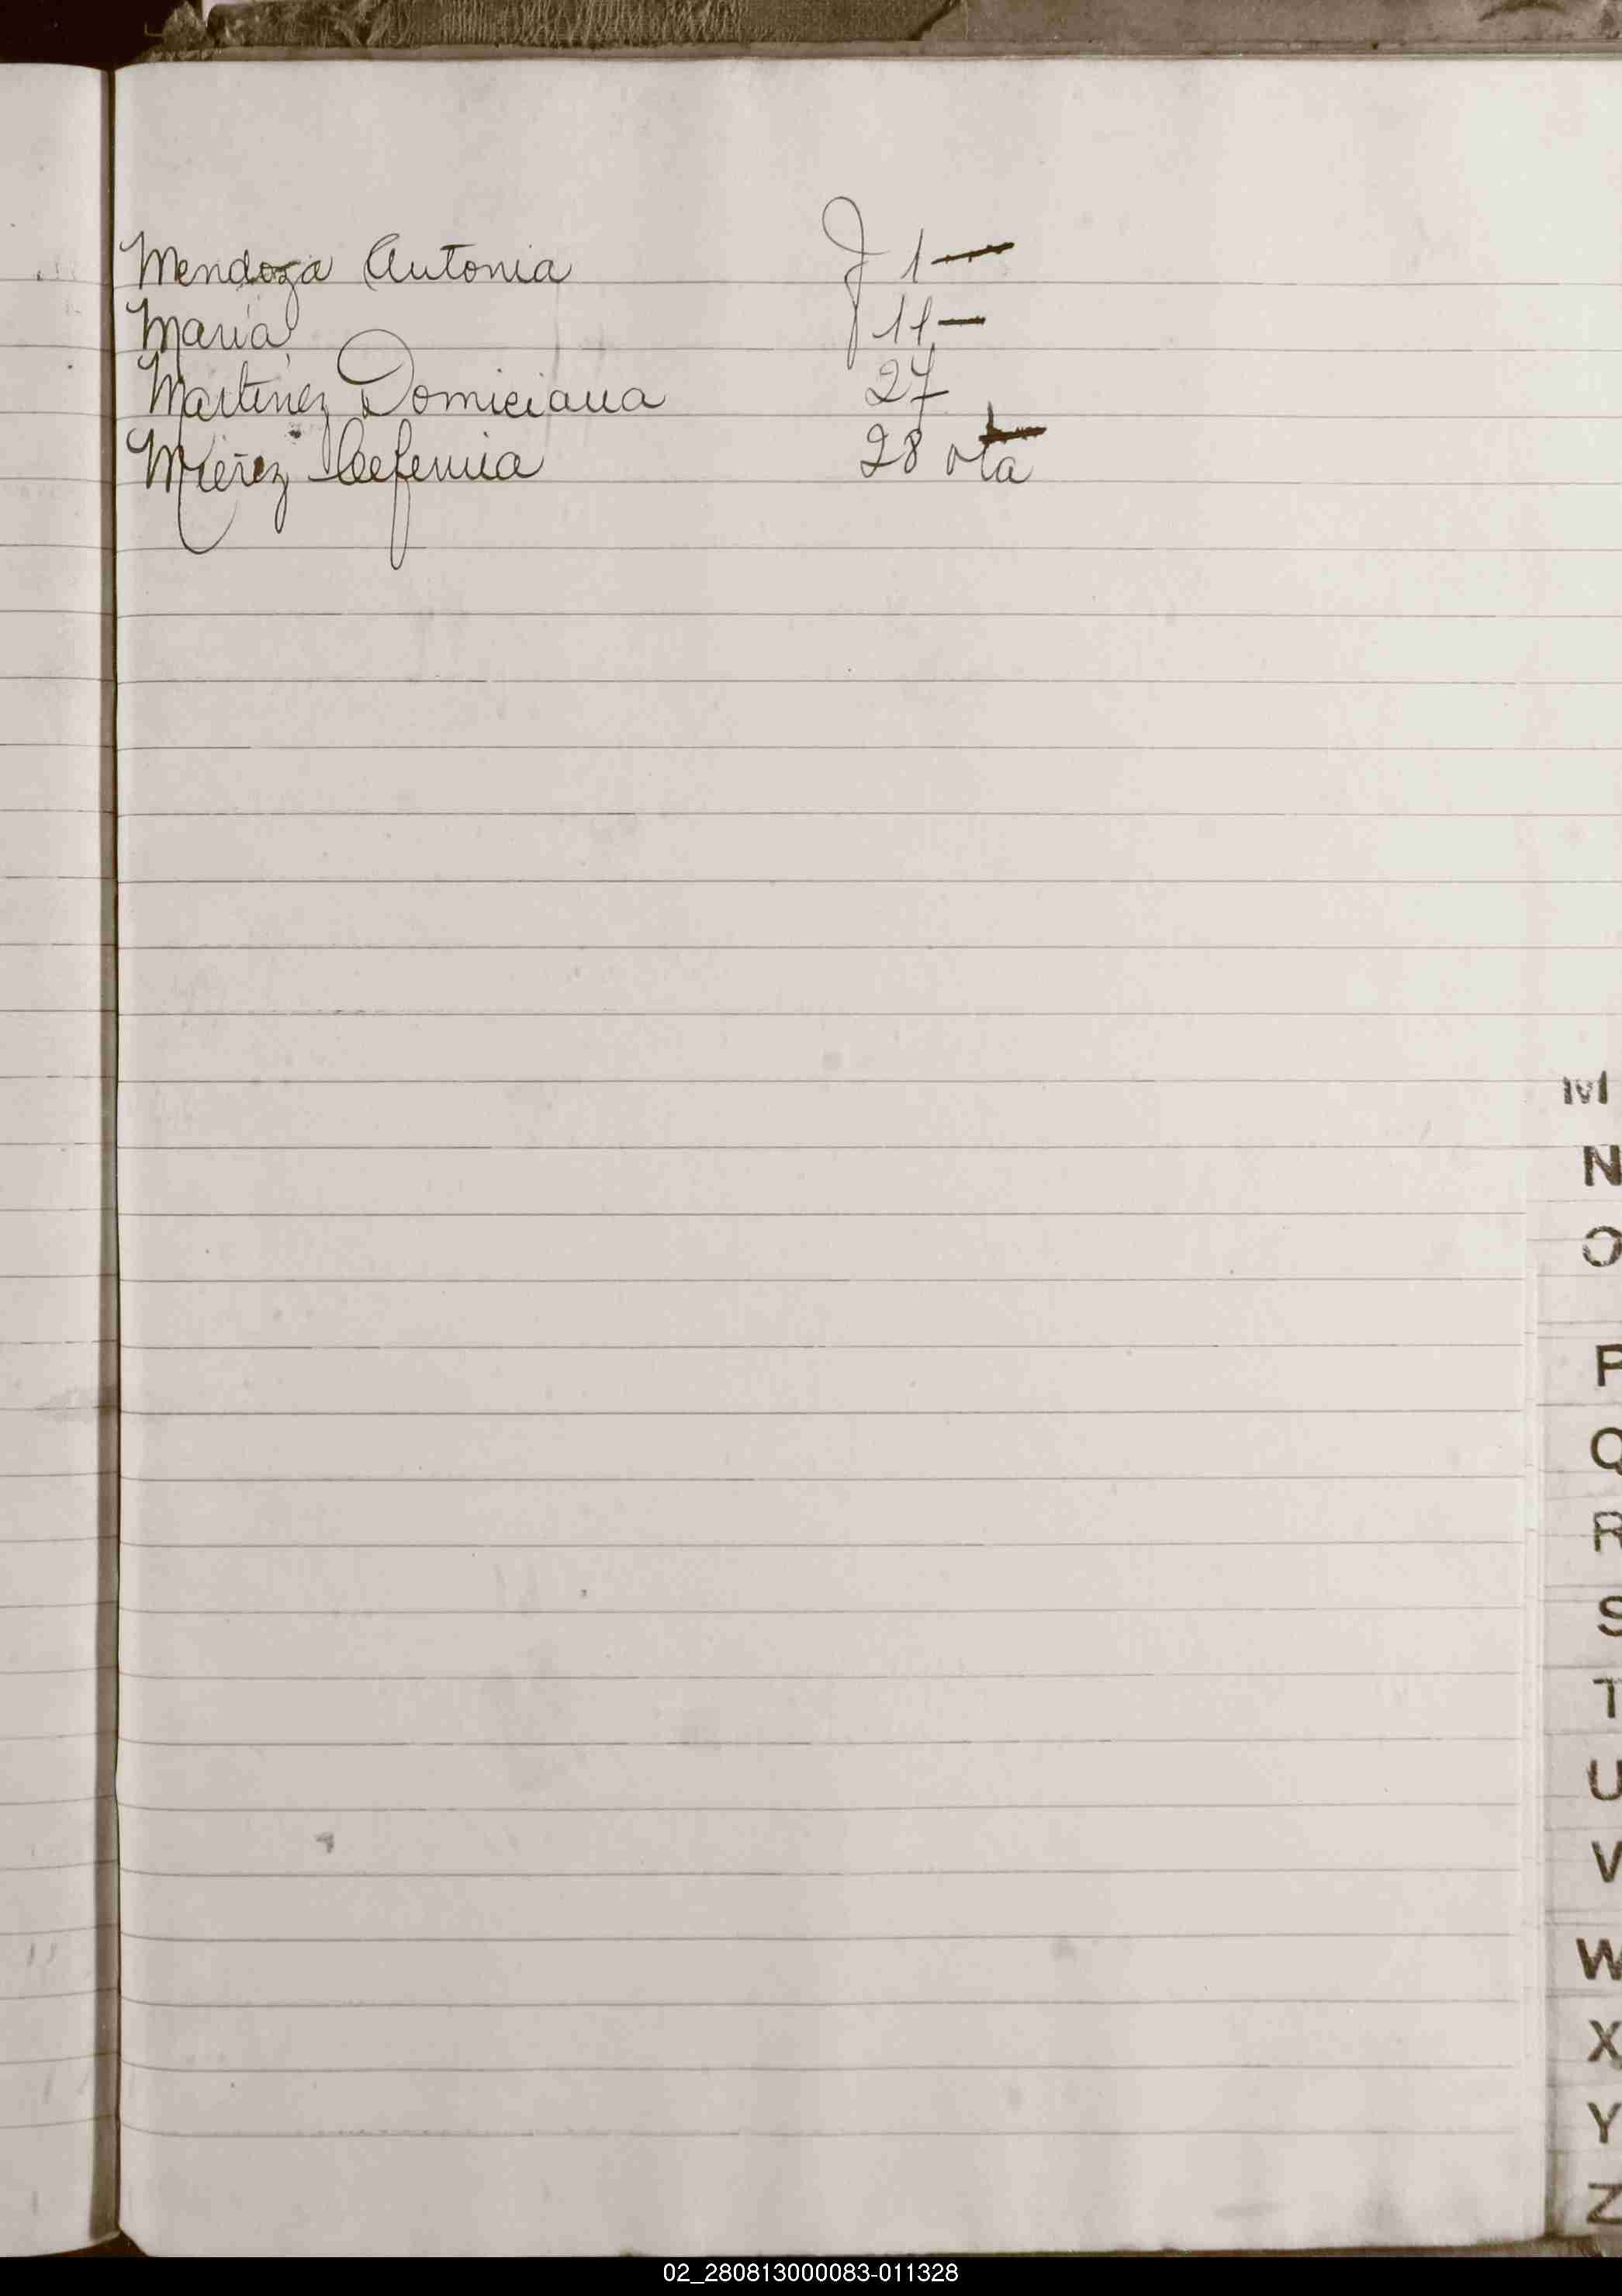 Mendoza Antonia f 1—
Maria 11—
Martinez Domiciana 27
Mierez Ceferina 28 vta
M
N
O
P
Q
R
S
T
U
V
W
X
Y
Z
02_280813000083-011328